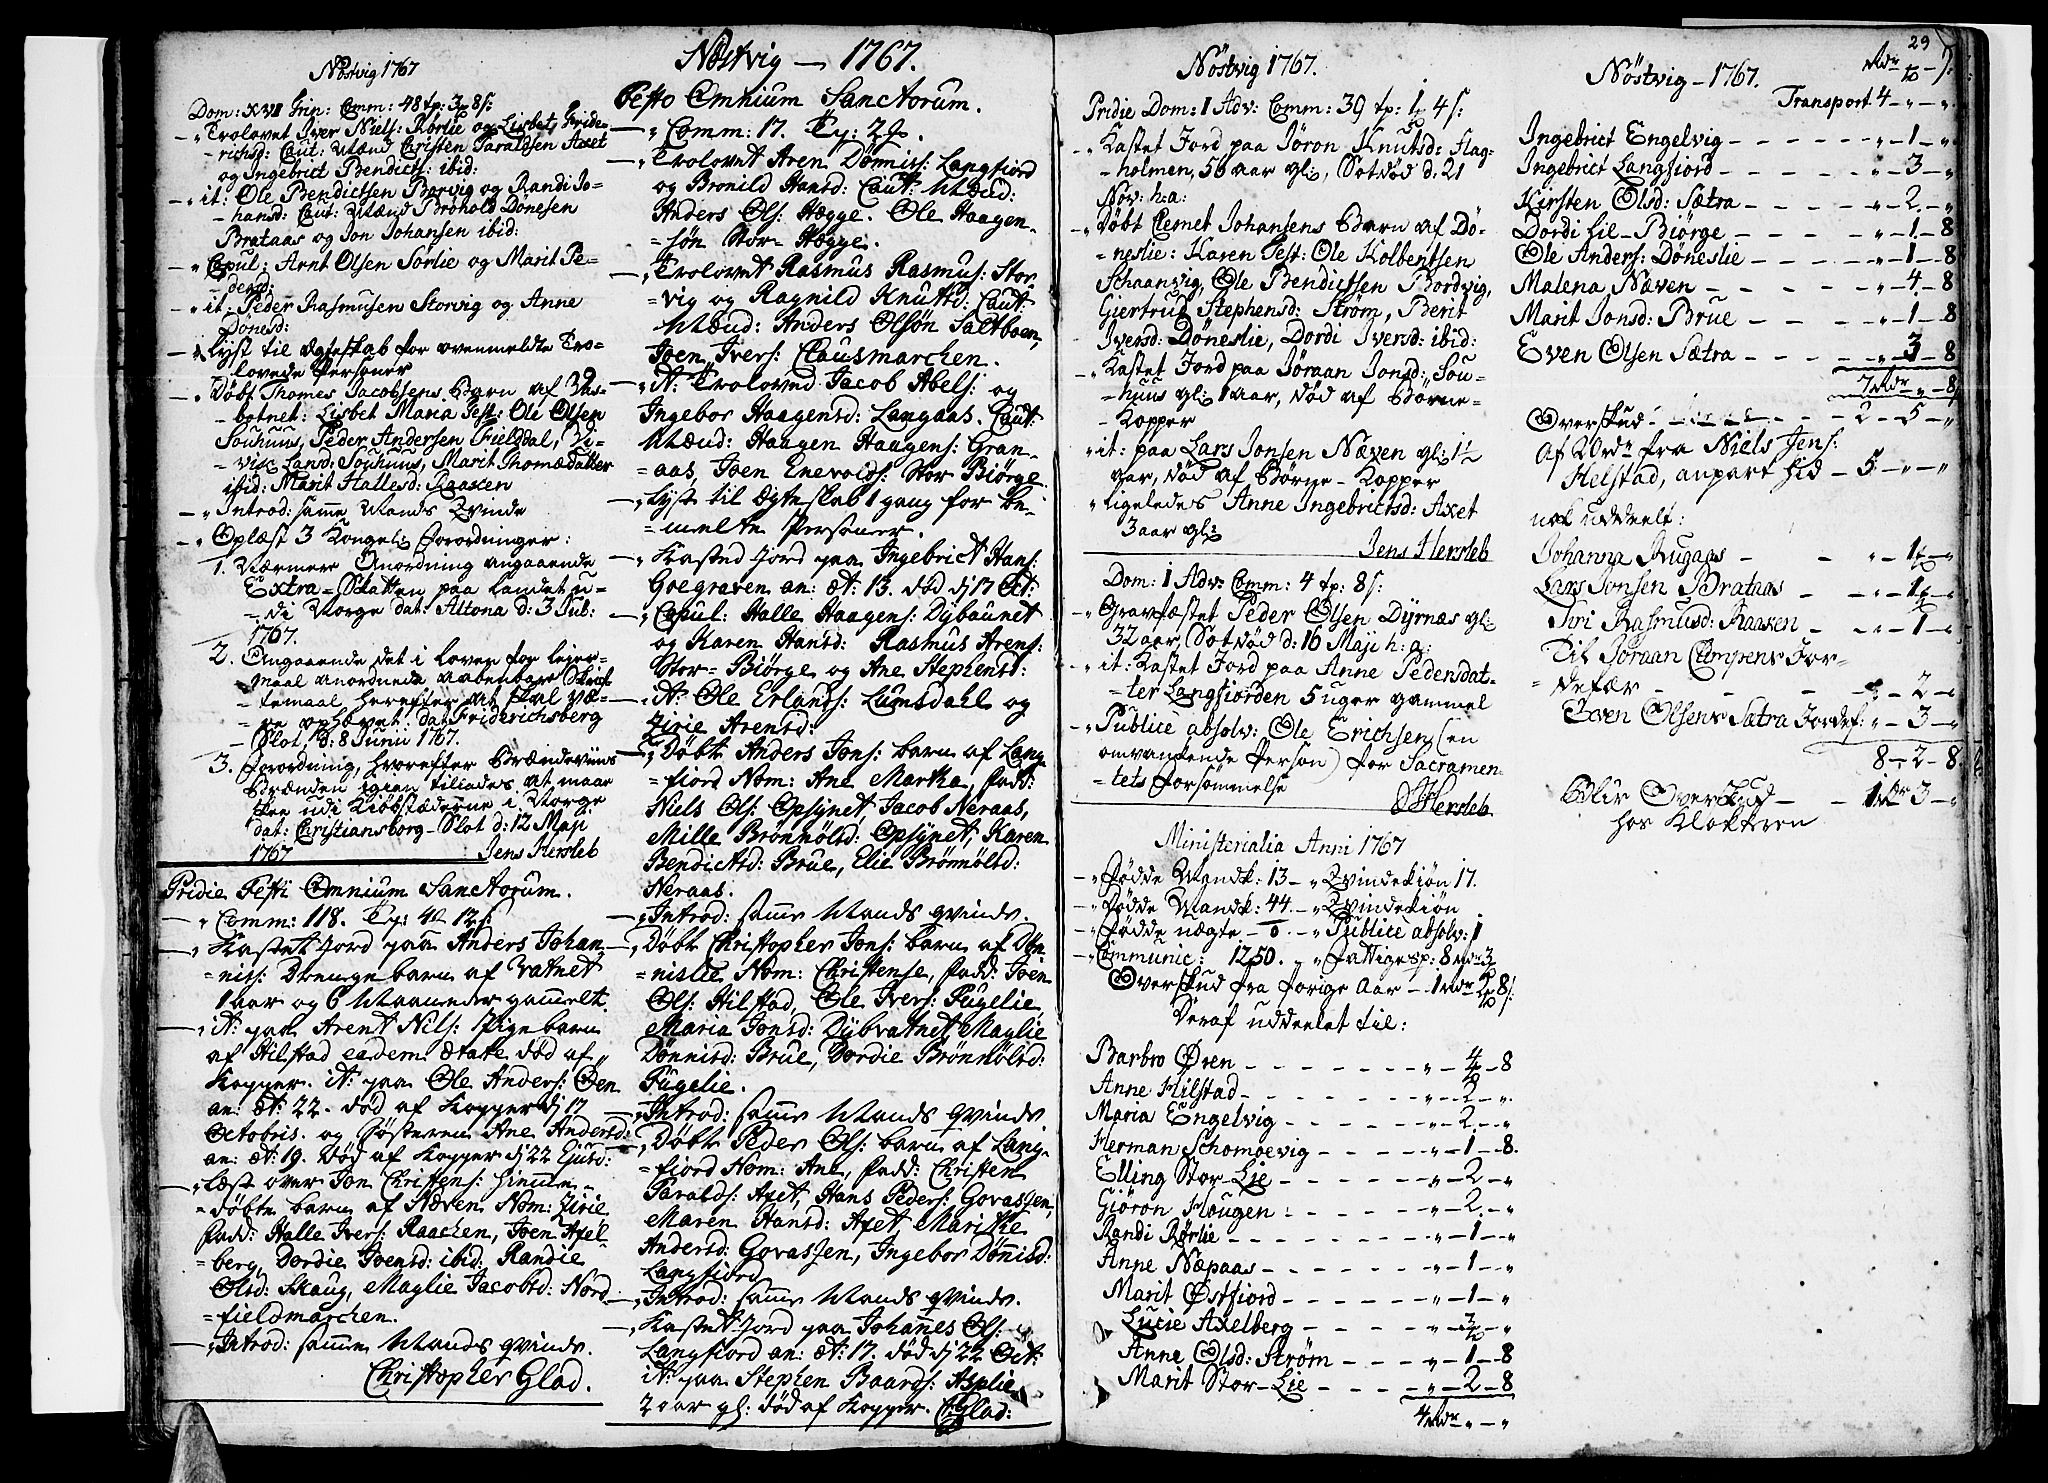 Nöstvig 1767
Dom: XVII Trin: Comm: 48 tp: 3 8 s:
Trolovet Iver Niels: Rørlie og Lisbet Fride-
richsd: Caut. Mænd Christen Taraldsen Axet
og Ingebrict Bendicts: ibid:
it: Ole Bendictsen Borvig og Randi Jo-
hansd: Caut: Mænd Brøhold Dönesen
Brataas og Jon Johansen ibid:
Copul: Arnt Olsen Sørlie og Marit Pe-
dersd:
it: Peder Rasmusen Storvig og Anne
Donesd:
Lyst til Egteskab for ovenmeldte Tro-
lovede Personer
Döbt Thomes Jacobsens Barn af
botnet: Lisbet Maria Test: Ole Olsen
Souhuus, Peder Andersen Fielddal, Vi-
vix Larsd: Souhuus, Marit Thomædatter
ibid: Marit Hallesd: Raaken
Introd: samme Mands Qvinde
Oplæst 3 Kongel: Forordninger:
1. Nærmere Anordning angaaende
Extra-Skatten paa Landet u-
di Norge dat: Altona d: 3 Jul:
1767.
2. Angaaende det i Loven for Leier-
maal anordnede aabenbare Skrif-
temaal herefter at skal væ-
re ophævet. dat: Friderichsberg
Slot, d: 8 Junii 1767.
3. Forordning, hvorefter Brændeviins
Brænden igien tillades at maae
skee udi Kiöbstæderne i Norge
dat: Christiansborg-Slot d: 12 Maji
1767 Jens Hersleb
Pridie Festi Omnium Sanctorum.
Comm: 118. Tp: 4 12 s:
Kastet Jord paa Anders Johan-
nis: Drenge barn af Vatnet
1 aar og 6 Maaneder gamelt.
it: paa Arent Nils: Pige barn
af Hilstad eadem ætate død af
Kopper. it: paa Ole Anders: Øen
an: æt: 22. død af Kopper dj 17
Octobris. og Søsteren Ane Andersd:
an: æt: 19. død af Kopper dj 22
læst over Jon Christens: hieme-
döbte barn af Næren Nom: Zirie
Padd: Halle Ivers: Raachen, Joen Axel-
berg, Dordie Joensd: ibid: Randie
Olsd: Skaug, Maglie Jacobsd: Nord-
fieldmarchen.
Introd: samme Mands qvinde.
Christopher Glad.
Nöstvig — 1767.
Festo Omnium Sanctorum.
Comm: 17. Tp: 2
Trolovet Aren Dönnis: Langfiord
og Bronild Hansd: Caut: Mænd:
Anders Ols: Hegge. Ole Haagen-
søn Stor Hegge.
Trolovet Rasmus Rasmus: Stor-
vig og Ragnild Knutsd: Caut:
Mænd: Anders Olsøn Saltboen,
Joen Ivers: Clausmarchen.
it: Troloved Jacob Abels: og
Ingebor Haagensd: Langaas. Caut:
Mænd: Haagen Haagens: Gran-
aas, Joen Enevolds: Stor Biørge.
Lyst til Ægteskab 1 gang for be-
melte Personer.
Kasted Jord paa Ingebrict Hans:
Goegraven an: æt: 13. død dj 17 Oct:
Copul: Halle Haagens: Dybaunet
og Karen Hansd: Rasmus Arens:
Stor-Biørge og Ane Stephensd:
it: Ole Erlands: Lumsdahl og
Zirie Arensd:
Döbt Anders Jons: barn af Lang-
fiord Nom: Ane Martha, Padd:
Niels Ols: Opsynet, Jacob Neraas,
Mille Brönnölsd: Opsynet, Karen
Bendictsd: Brue, Elie Brönnölsd:
Neraas.
Introd: samme Mands qvinde.
Döbt Christopher Jons: barn af Dön-
neslie Nom: Christense, Padd: Joen
Ols: Hilstad, Ole Ivers: Fugelie,
Maria Jonsd: Dybvatnet, Maglie
Dönnisd: Brue, Dordie Brönnölsd:
Fugelie.
Introd: samme Mands qvinde.
Döbt Peder Ols: barn af Lang-
fiord Nom: Ane, Padd: Christen
Taralds: Axet, Hans Peders: Govassen,
Maren Hansd: Axet, Marithe
Andersd: Govassen, Ingebor Dönnisd:
Langfiord.
Introd: samme Mands qvinde.
Kastet Jord paa Johannes Ols:
Langfiord an: æt: 17. død dj 22 Oct:
it: paa Stephen Baards: Asplie
2 aar gl: død af Kopper. C: Glad:
Nöstvig 1767.
Pridie Dom: 1 Adv: Comm: 39 tp: 1 4 s:
Kastet Jord paa Jöron Knutsd: Flag-
holmen, 56 aar gl:, Sotdød d. 21
Nov: h: a:
Döbt Clemet Johansens Barn af Dö-
neslie: Karen Test: Ole Kolbentsen
Schaanvig, Ole Bendictsen Bordvig,
Giertrud Stephensd: Ström, Berit
Iversd: Döneslie, Dordi Iversd: ibid:
Kastet Jord paa Jöraan Jonsd: Sou-
huus gl: 1 aar, död af Börne-
Kopper
it: paa Lars Jonsen Næven gl: 1½
aar, död af Börne-Kopper
ligeledes Anne Ingebrictsd: Axet
3 aar gl:
Jens Hersleb
Dom: 1 Adv: Comm: 4 tp: 8 s:
Gravfæstet Peder Olsen Dyrnæs gl:
32 aar, Sotdød d: 16 Maji h: a:
it: Kastet Jord paa Anne Pedersdat-
ter Langfiorden 5 uger gammel
Publice absolv: Ole Erichsen (en
omvankende Person) for Sacramen-
tets Forsömmelse
J Hersleb
Ministerialia Anni 1767
Födde Mandk: 13 — Qvindekiön 17.
Födde Mandk: 44. — Qvindekiön
Födde uægte — 0. — Publice absolv: 1
Communic: 1250. Fattigesp: 8 3
Overskud fra forige Aar — 1 2 8 s:
Deraf uddeelet til:
Barbro Øren - - - 4 - 8
Anne Hilstad - - - 2 - "
Maria Engelvig - - - 2 - "
Herman Schomoevig - - - 1 - 8.
Elling Stor-Lie - - - 2 - "
Giöron Hougen - - - 2 - "
Randi Rørlie - - - 1 - "
Anne Næpaas - - - 1 - "
Marit Østfiord - - - 1 - "
Lucie Axelberg - - - 3 - "
Anne Olsd: Ström - - - 1 - 8
Marit Stor-Lie - - - 2 - 8
4 " - "
29
Nöstvig — 1767.
Transport 4 - " - "
Ingebrict Engelvig - - - " - 1 - "
Ingebrict Langfiord - - - " - 3 - "
Kirsten Olsd: Sætra - - - " - 2 - "
Dordi Lil-Biörge - - - " - 1 - 8
Ole Anders: Döneslie - - - " - 1 - 8
Malena Næven - - - " - 4 - 8
Marit Jonsd: Brue - - - " - 1 - 8
Even Olsen Sætra - - - " - 3 - 8
7 " - 8
Overskud - - - 2 - 5 - "
Af 20 rdr fra Niels Jens:
Helstad, anpart hid - 5 - " - "
nok uddeelt:
Johanna Augaas - - - " - 1 - "
Lars Jonsen Brataas - - - " - 1 - "
Siri Rasmusd: Raaken - - - " - 1 - "
Til Jöraan Clompens Jor-
defær - - - " - 2 - "
Even Olsens Sætra Jordef: " - 3 - "
8 - 2 - 8
Blir Overskud - 1 3 - "
hos Klokkeren